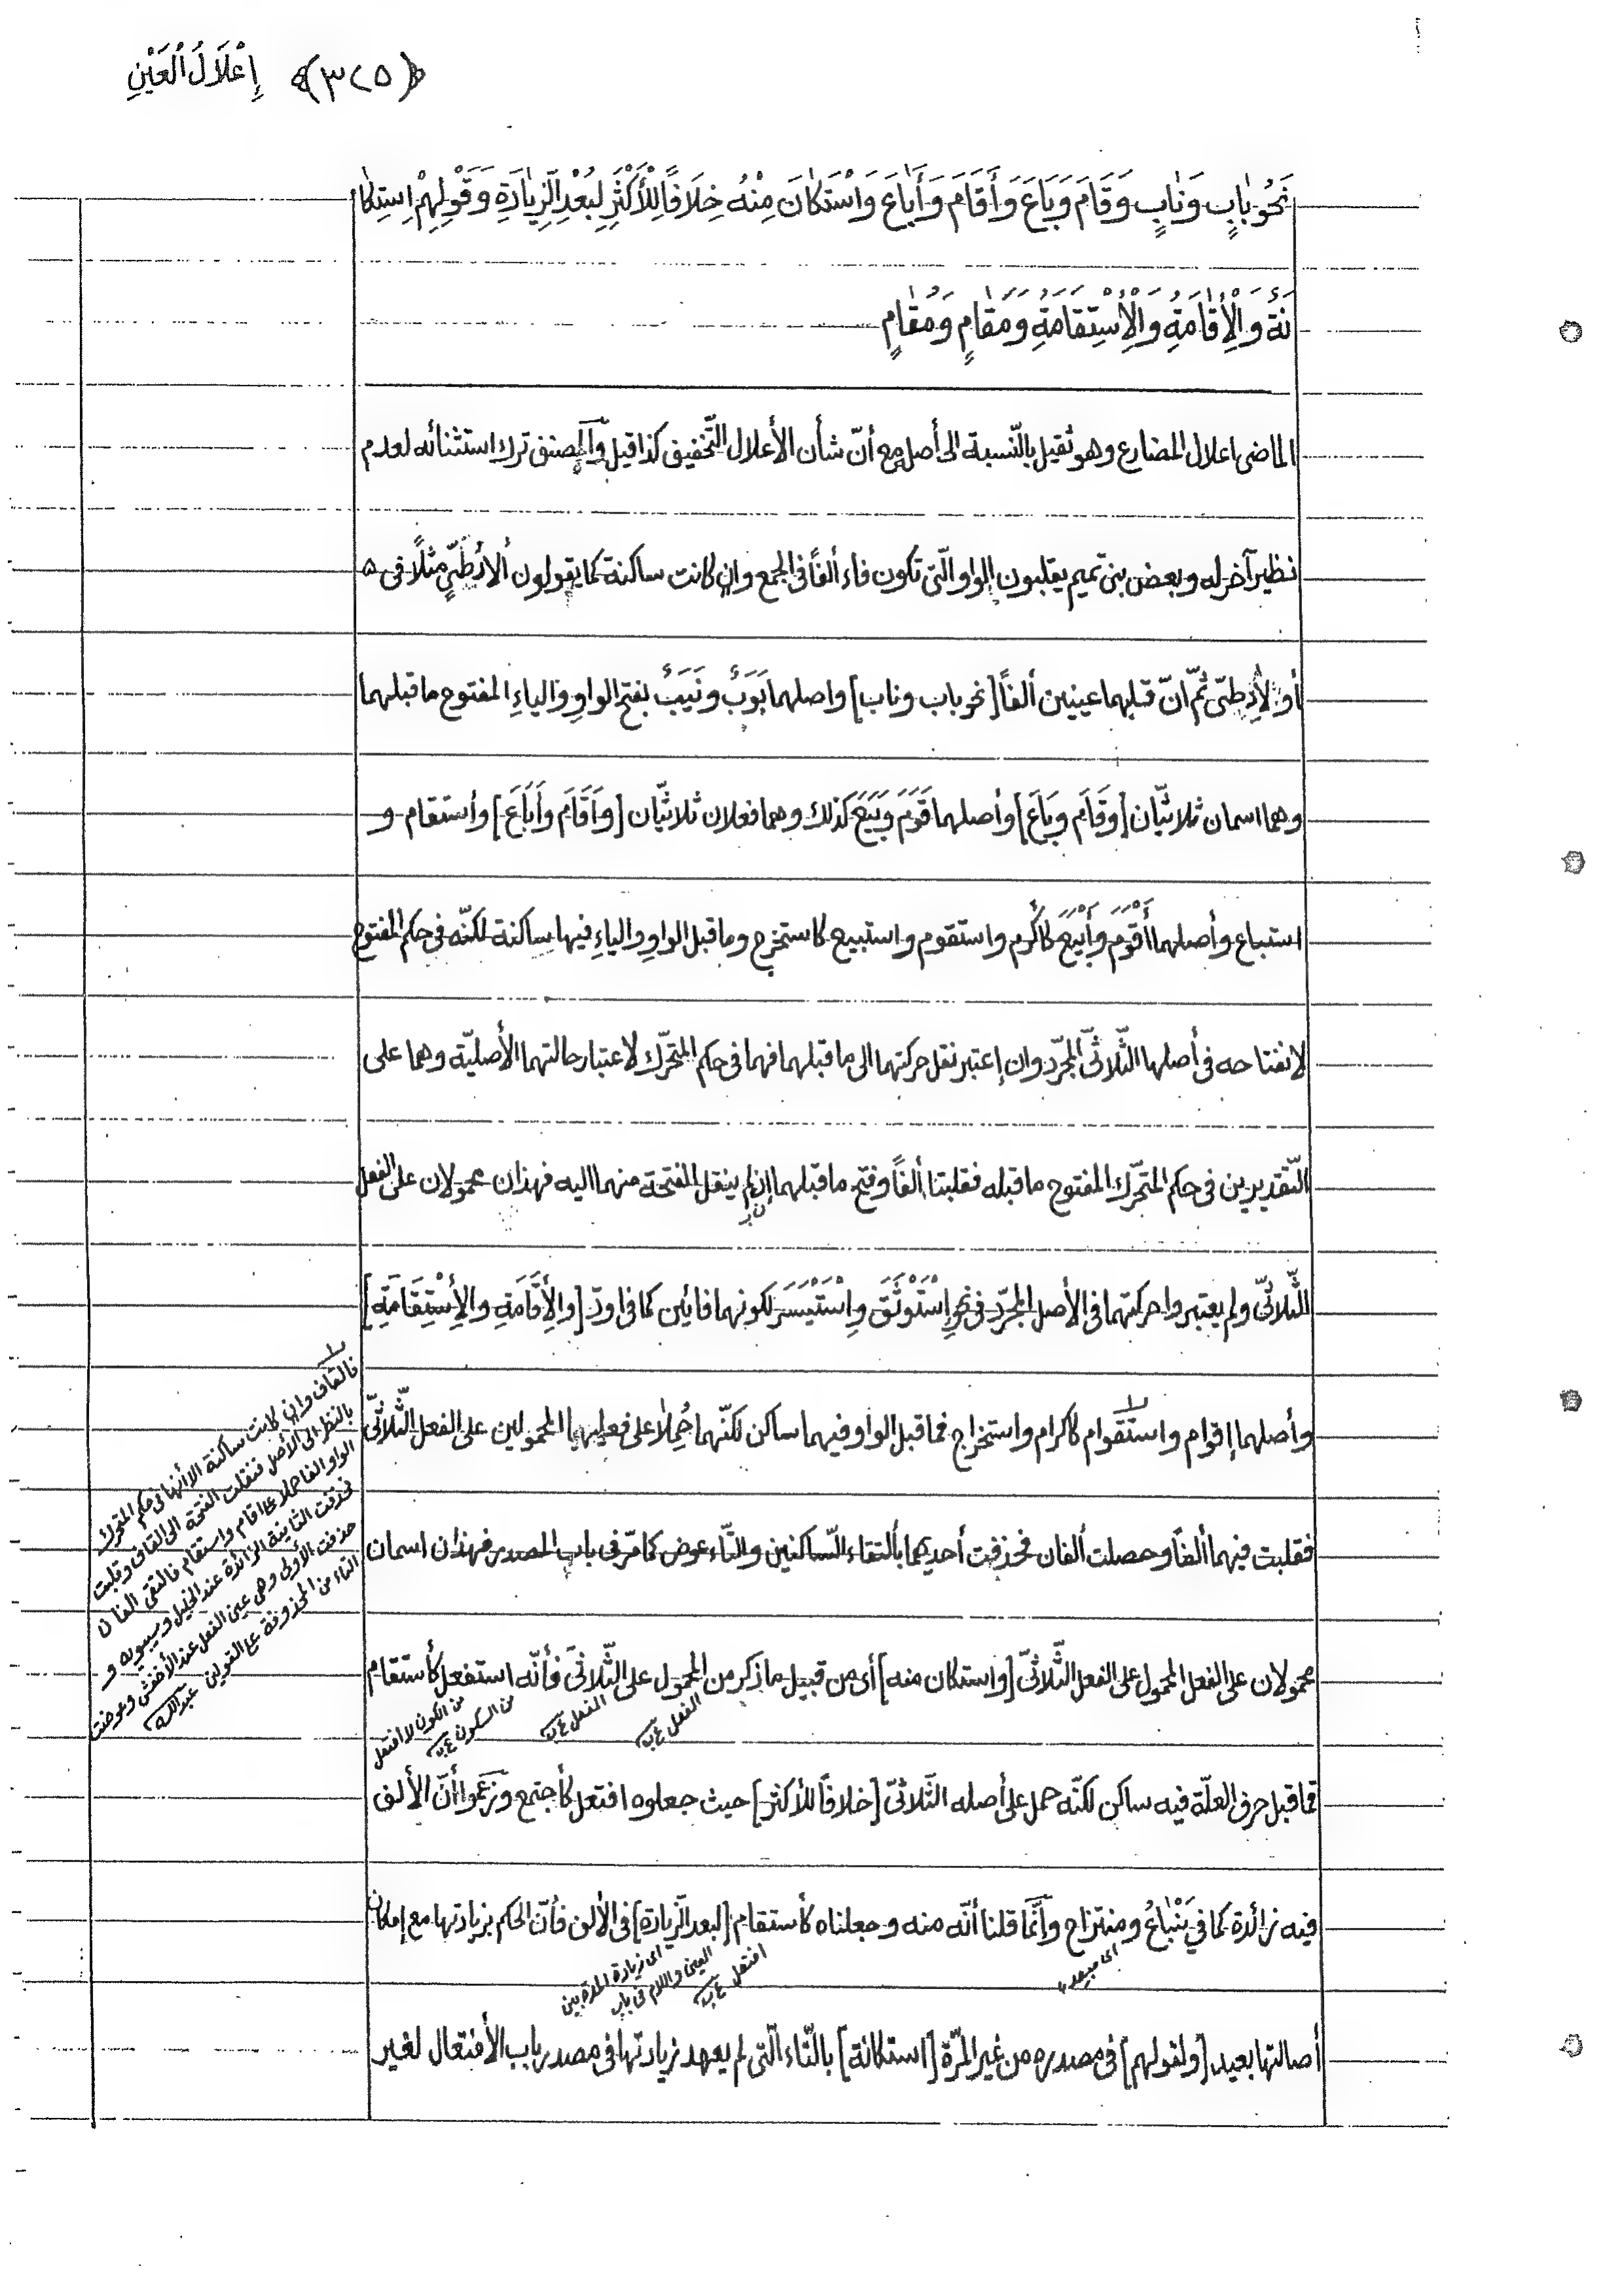 ﴿٣٢٥﴾ إِعْلَالُ الْعَيْنِ
نَحْوُ بٰابٍ وَنٰابٍ وَقَامَ وَبَاعَ وَأَقَامَ وَأَبٰاعَ وَاسْتَكٰانَ مِنْهُ خِلَافًا لِلْأَكْثَرِ لِبُعْدِ الزِّيٰادَةِ وَقَوْلِهِمْ اِسْتِكٰا
نَةً وَالْإِقٰامَةِ وَالْإِسْتِقَامَةِ وَمَقٰامٍ وَمُقٰامٍ
الماضى اعلال المضارع وهو ثقيل بالنّسبة الى أصله مع أنّ شأن الأعلال التّخفيف كذا قيل والمصنف ترك استثنائه لعدم
نظير آخر له وبعض بنى تميم يقلبون الواو الّتى تكون فاء ألفاً فى الجمع وان كانت ساكنة كما يقولون ألادُطَىّ مثلًا فى
أولادِطىّ ثمّ انّ قلبهما عينين ألفاً [نحو باب وناب] واصلهما بَوَبٌ ونَيَبٌ بفتح الواوِ والياءِ المفتوح ما قبلهما
وهما اسمان ثلاثيّان [وقَامَ وبَاعَ] وأصلهما قَوَمَ وبَيَعَ كذلك وهما فعلان ثلاثيّان [وأَقَامَ وأَبَاعَ] وأستقام و
استباع وأصلهما أَقْوَمَ وأَبْيَعَ كأكْرم واستقوم واستبيع كاستخرج وما قبل الواوِ والياءِ فيها ساكنة لكنّه فى حكم المفتوح
لانفتاحه فى أصلها الثّلاثىّ المجرّد وان إعتبر نقل حركتهما الى ما قبلهما فهما فى حكم المتحّرك لاعتبار حالتهما الأصليّة وهما على
التّقديرين فى حكم المتحّرك المفتوح ما قبله فقلبتا ألفاً وفتح ما قبلهما إن لم ينقل الفتحة منهما اليه فهذان محمولان على الفعل
الثّلاثىّ ولم يعتبروا حركتهما فى الأصل المجرّد فى نحو إسْتَوْثَقَ وإسْتَيْسَرَ لكونهما فائين كما فى اودّ [والإِقَامَةِ والإِسْتِقَامَةِ]
وأصلهما إقوام واستقوام كاكرام واستخراج فما قبل الواو فيهما ساكن لكنّهما حُمِلا على فعليهما المحمولين على الفعل الثّلاثىّ
فقلبت فيهما ألفاً وحصلت ألفان فحذفت أحديهما بألتقاء السّاكنين والتّاء عوض كما مّر فى باب المصدر فهذان اسمان
محمولان على الفعل المحمول على الفعل الثّلاثىّ [واستكان منه] أى من قبيل ما ذكر من المحمول على الثّلاثىّ فأنّه استفعل كأستقام
من الكون لا افتعل
من السكون
الفعل
الفعل
فما قبل حرف العلّة فيه ساكن لكنّه حمل على أصله الثّلاثىّ [خلافاً للأكثر] حيث جعلوه افتعل كأجتمع وزعموا أنّ الألف
فيه زائدة كما في يَنْبٰاعُ ومنتزاح وإنّما قلنا أنّه منه وجعلناه كأستقام [لبعد الزّيادة] فى الألف فأنّ الحكم بزيادتها مع إمكان
اى زيادة المدة بين
العين واللام فى باب
افتعل
أصالتها بعيد [ولقولهم] فى مصدره من غير المرّة [استكانة] بالتّاء الّتى لم يعهد زيادتها فى مصدر باب الأفتعال لغير
فالقاف وان كانت ساكنة الا أنها فى حكم المتحرك
بالنظر الى الأصل فنقلت الفتحة الى القاف وقلبت
الواو الفا حملا على اقام واستقام فالتقى الفان
فحذفت الثانية الزائدة عند الخليل وسيبويه و
حذفت الأولى وهى عين الفعل عند الأخفش وعوضت
التاء من المحذوفة على القولين عبدالله